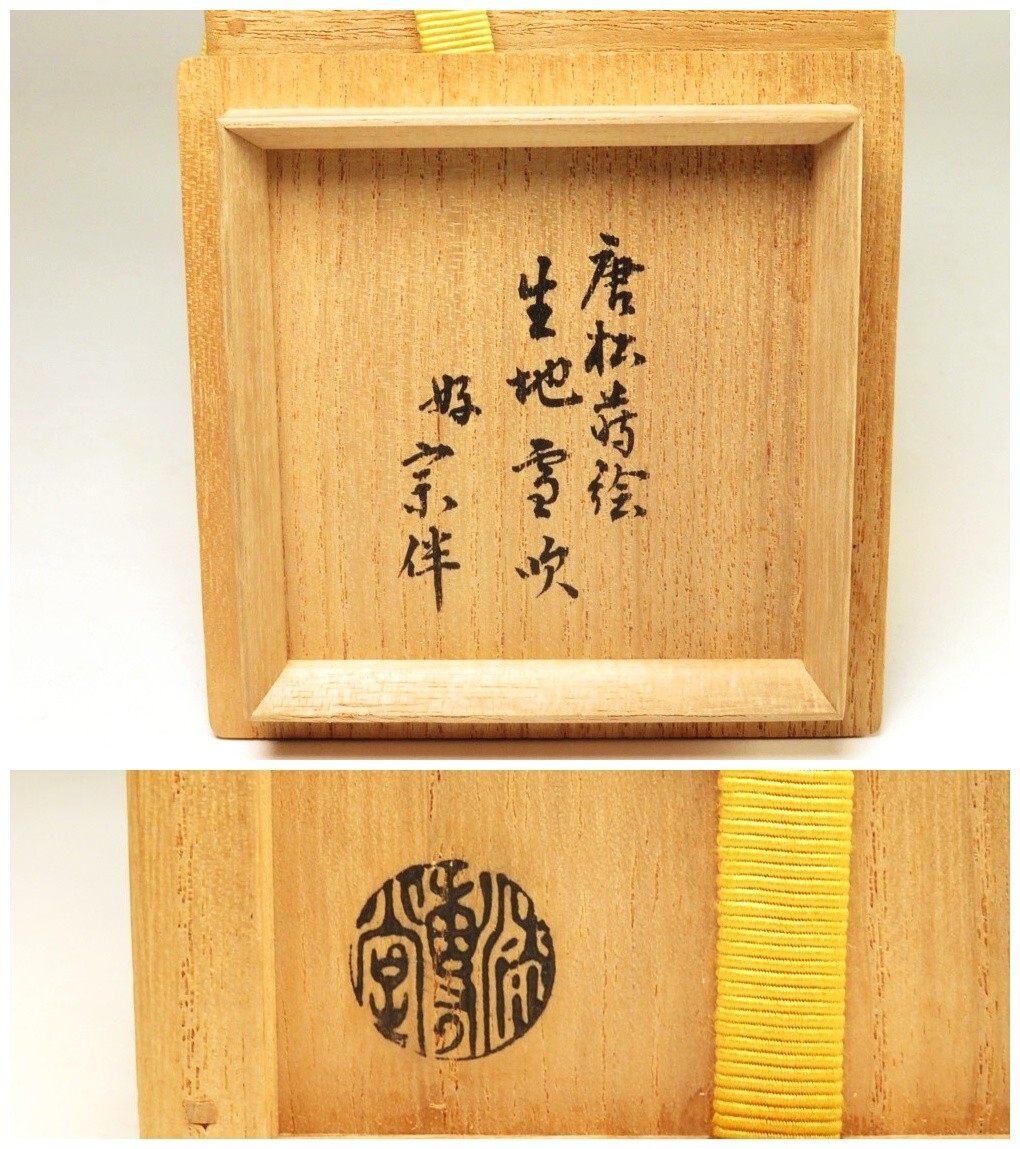 唐松蒔絵
生地雪吹
好
宗伴